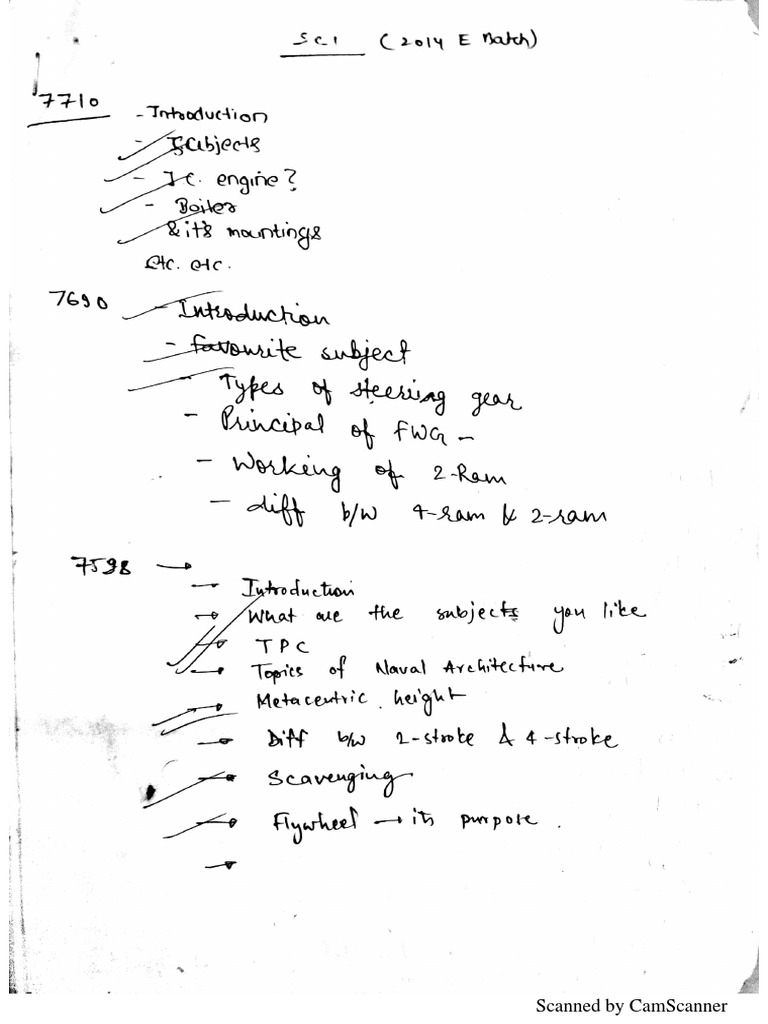 SCI (2014 E Batch)
7710 - Introduction
- Subjects
- I.C. engine?
- Boiler
& it's mountings
etc. etc.
7690 - Introduction
- favourite subject
- Types of steering gear
- Principal of FWG -
- Working of 2-Ram
- diff b/w 4-ram & 2-ram
7598 →
→ Introduction
→ What are the subjects you like
→ TPC
→ Topics of Naval Architecture
→ Metacentric height
→ Diff b/w 2-stroke & 4-stroke
→ Scavenging
→ Flywheel → its purpose.
→
Scanned by CamScanner